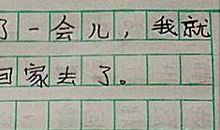 了一会儿，我就
回家去了。